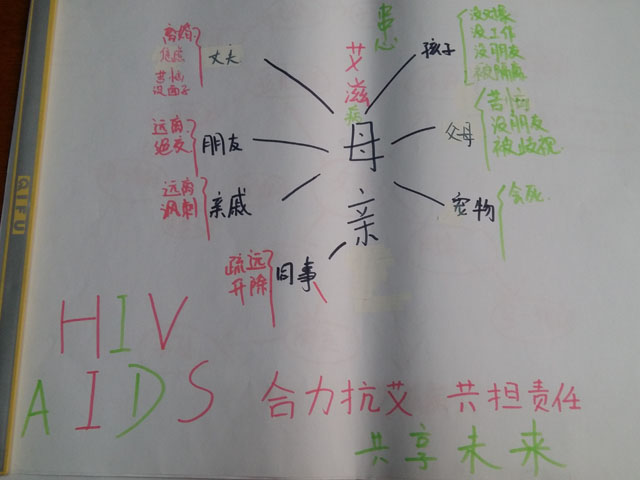 患
艾
滋
病
母
亲
丈夫
离婚
苦恼
没面子
朋友
远离
绝交
亲戚
远离
讽刺
同事
疏远
开除
孩子
没对象
没工作
没朋友
被隔离
父母
苦恼
没朋友
被歧视
宠物
会死
HIV
AIDS
合力抗艾 共担责任
共享未来